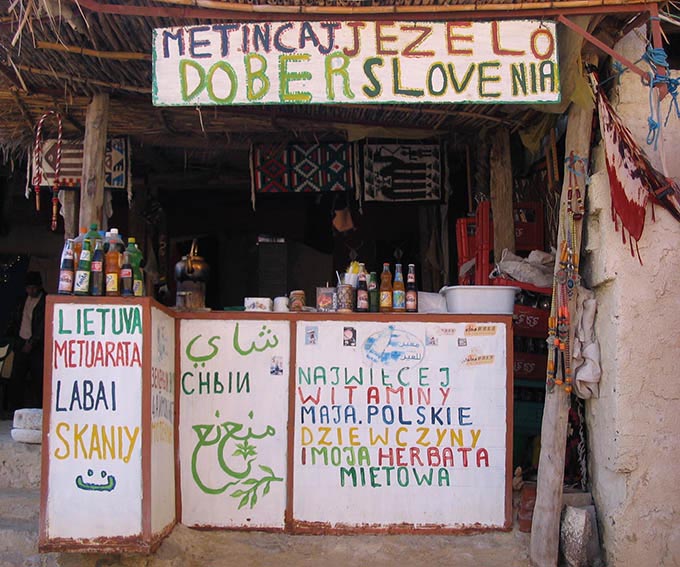 METINCAJ.JE ZELO
DOBER SLOVENIA
LIETUVA
METUARATA
LABAI
SKANIY
شاي
CHЫИ
منعنع
NAJWIECEJ
WITAMINY
MAJA.POLSKIE
DZIEWCZYNY
I MOJA HERBATA
MIETOWA